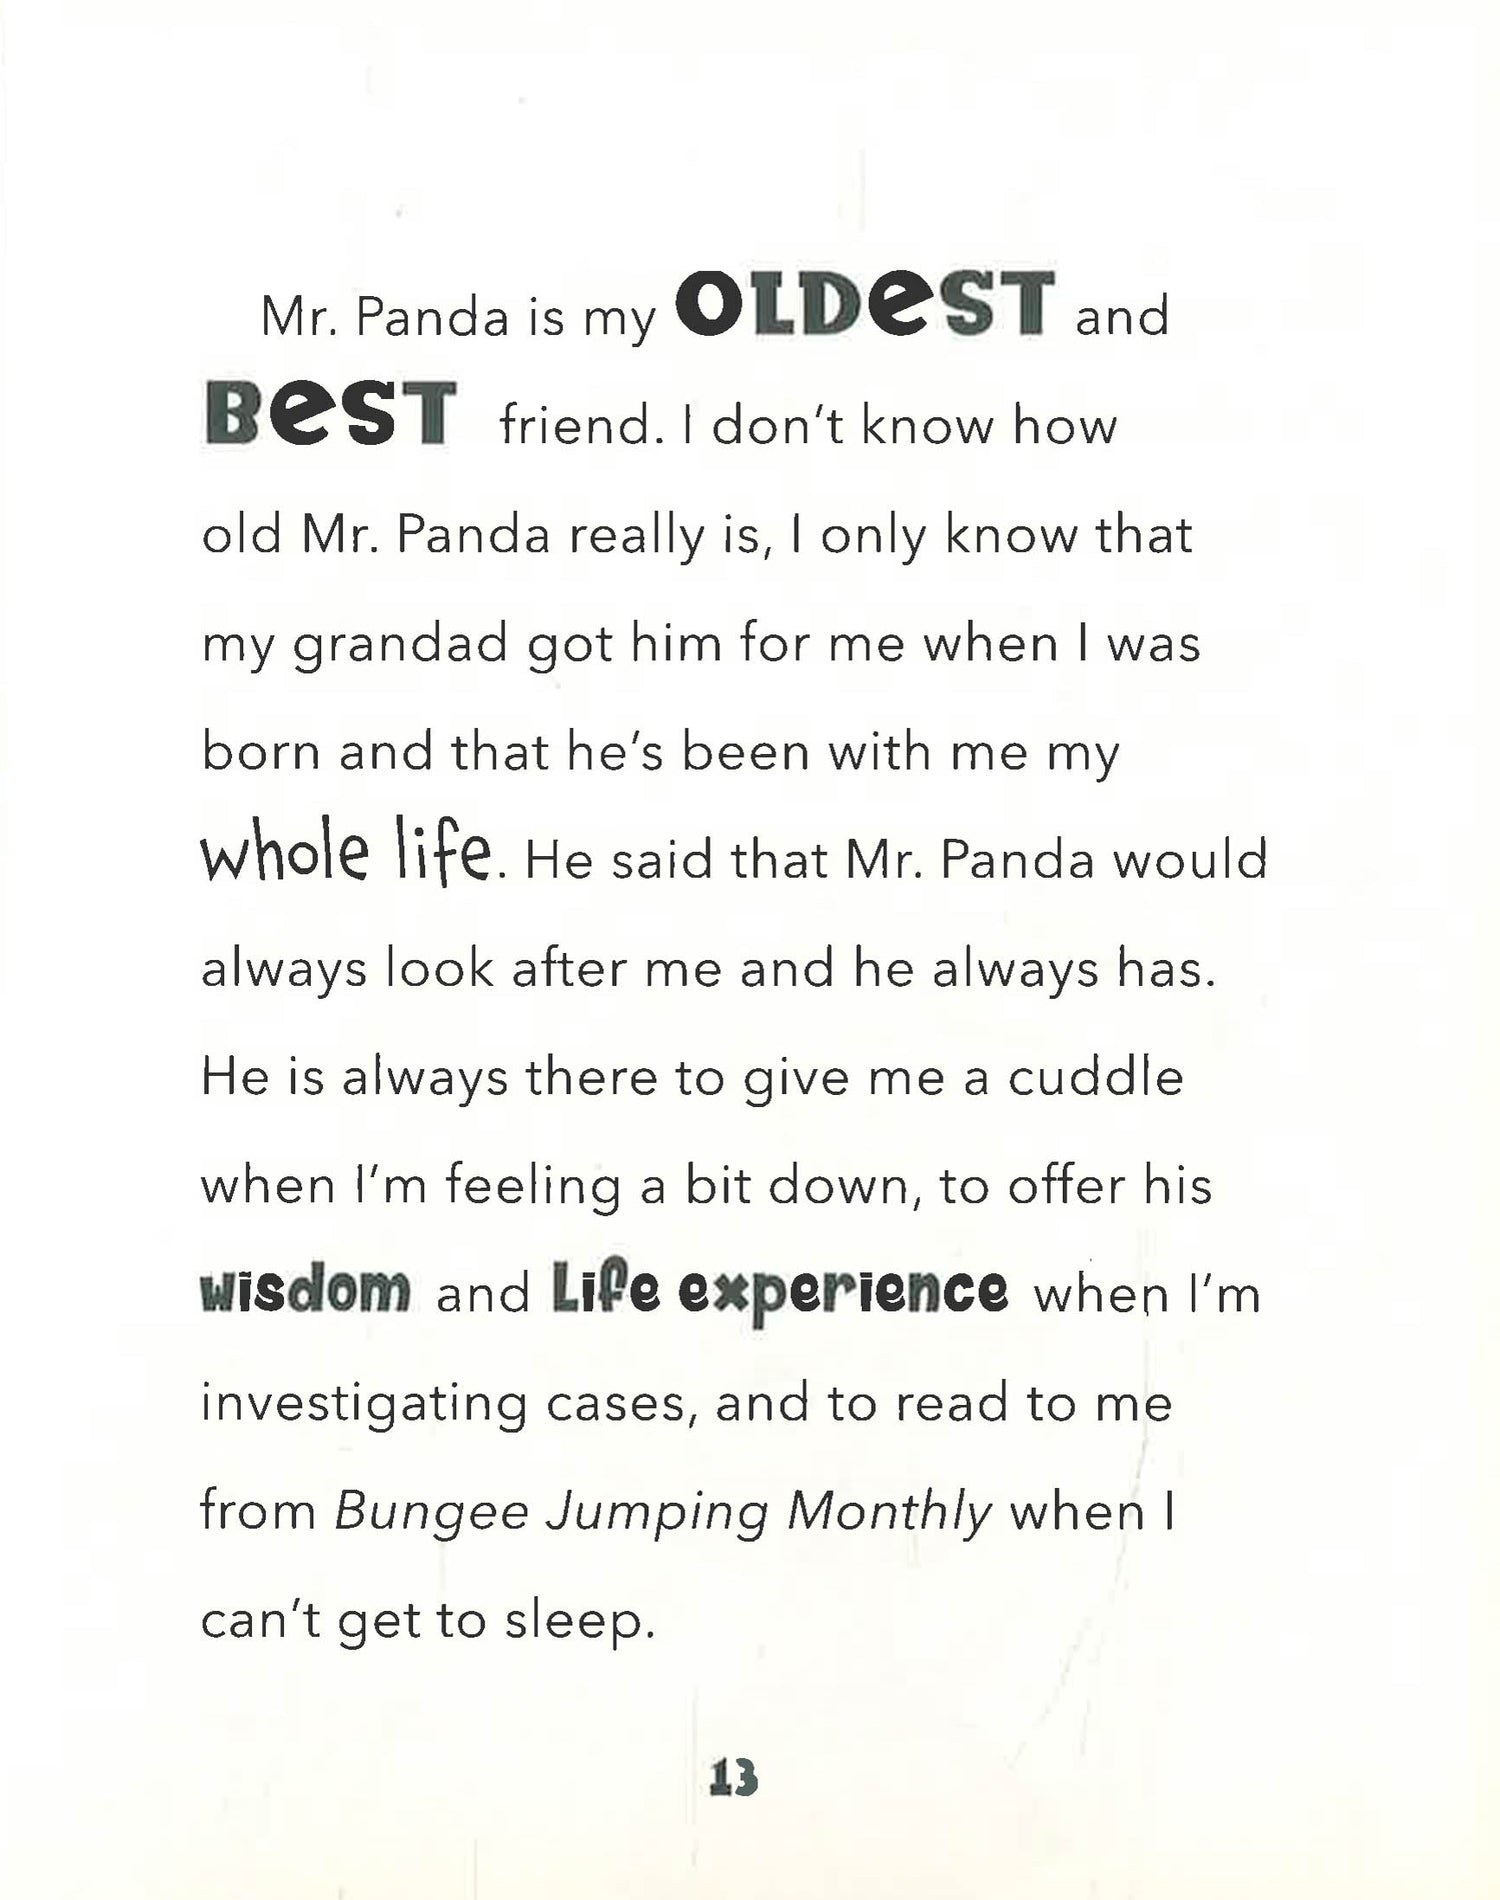 Mr. Panda is my OLDeST and
BeST friend. I don't know how
old Mr. Panda really is, I only know that
my grandad got him for me when I was
born and that he's been with me my
whole life. He said that Mr. Panda would
always look after me and he always has.
He is always there to give me a cuddle
when I'm feeling a bit down, to offer his
wisdom and Life experience when I'm
investigating cases, and to read to me
from Bungee Jumping Monthly when I
can't get to sleep.
13